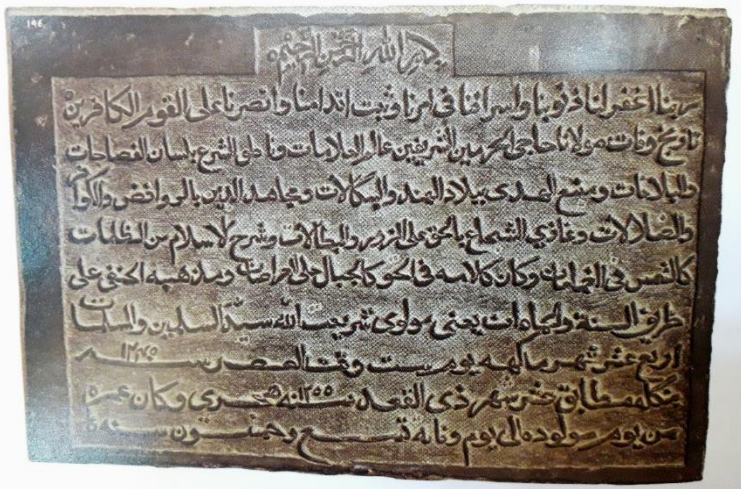 ۱۹٤
بسم الله الرحمن الرحيم
ربنا اغفر لنا ذنوبنا واسرافنا فى امرنا وثبت اقدامنا وانصرنا على القوم الكافرين
تاريخ وفات مولانا حاجي الحرمين الشريفين عالم العلامات وناطق الشرع بلسان الفصاحات
والبلاغات الهدى ببلاد الهند والبنكالات ومجاهد الدين بالروافض
والضلالات وغازي الشجاع بالحق على الزور والبطالات وشرح الاسلام من الظلمات
كالشمس فى الغمامات وكان كلامه فى الحق كالجبال ومذهبه الحنفى على
طريق السنة والجماعات يعنى مولوى شريعت الله سيد المسلمين والمسلمات
اربع عشر شهر ماكهه يوم سبت وقت العصر سنه
بنكله مطابق عشر شهر ذى القعد سنه ١٢٥٥ هجري وكان عمره
من يوم مولوده الى يوم وفاته تسع وخمسون سنة